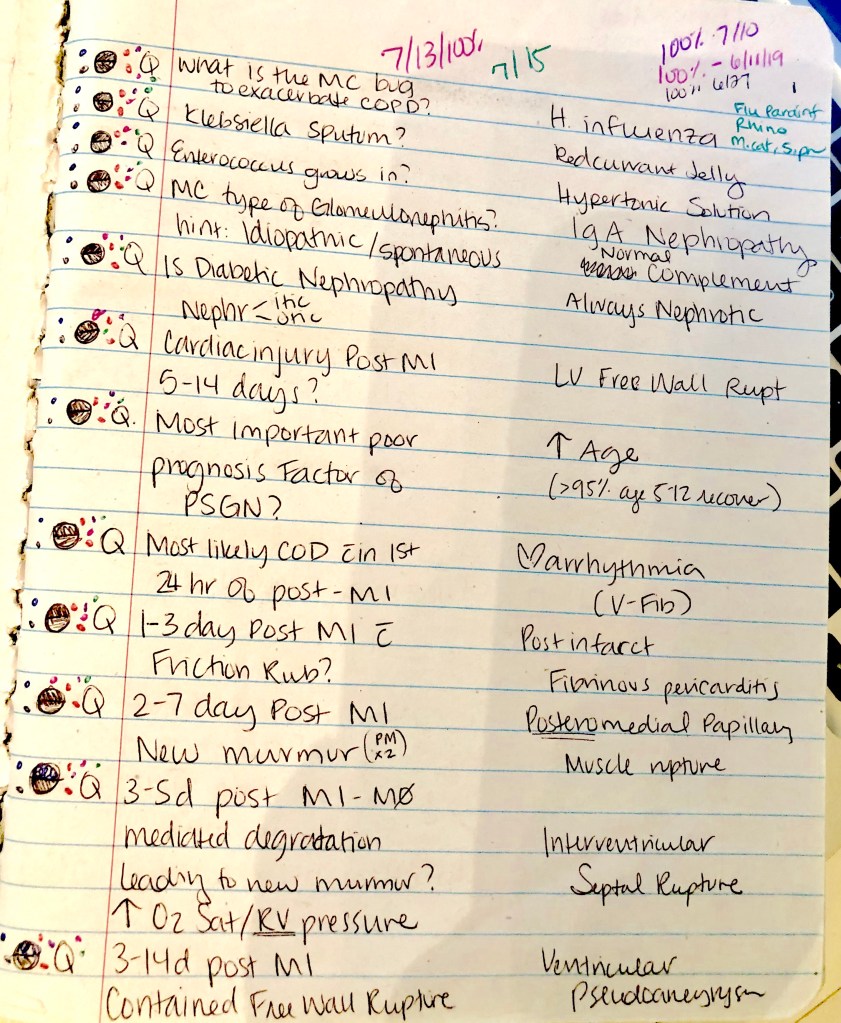 7/13/100%
7/15
100% 7/10
100% - 6/11/19
100% 6/27
Q What is the MC bug
to exacerbate COPD?
H. influenza
Flu Parainf
Rhino
M.cat, S.pn
Q Klebsiella Sputum?
Redcurrant Jelly
Q Enterococcus grows in?
Hypertonic Solution
Q MC type of Glomeulonephitis?
IgA Nephropathy
hint: Idiopathic/spontaneous
Normal
Complement
Q Is Diabetic Nephropathy
Always Nephrotic
Nephr < itic
otic
Q Cardiac injury Post MI
5-14 days?
LV Free Wall Rupt
Q. Most important poor
↑ Age
prognosis Factor of
(>95% age 5-12 recover)
PSGN?
Q Most likely COD c̄in 1st
♡arrhythmia
24 hr of post-MI
(V-Fib)
Q 1-3 day Post MI c̄
Post infarct
Friction Rub?
Fibrinous pericarditis
Q 2-7 day Post MI
Posteromedial Papillary
New murmur (PM x2)
Muscle rupture
Q 3-5d post MI-MØ
mediated degratation
Interventricular
leading to new murmur?
Septal Rupture
↑ O2 Sat/RV pressure
Q 3-14d post MI
Ventricular
Contained Free Wall Rupture
Pseudoaneyrysm